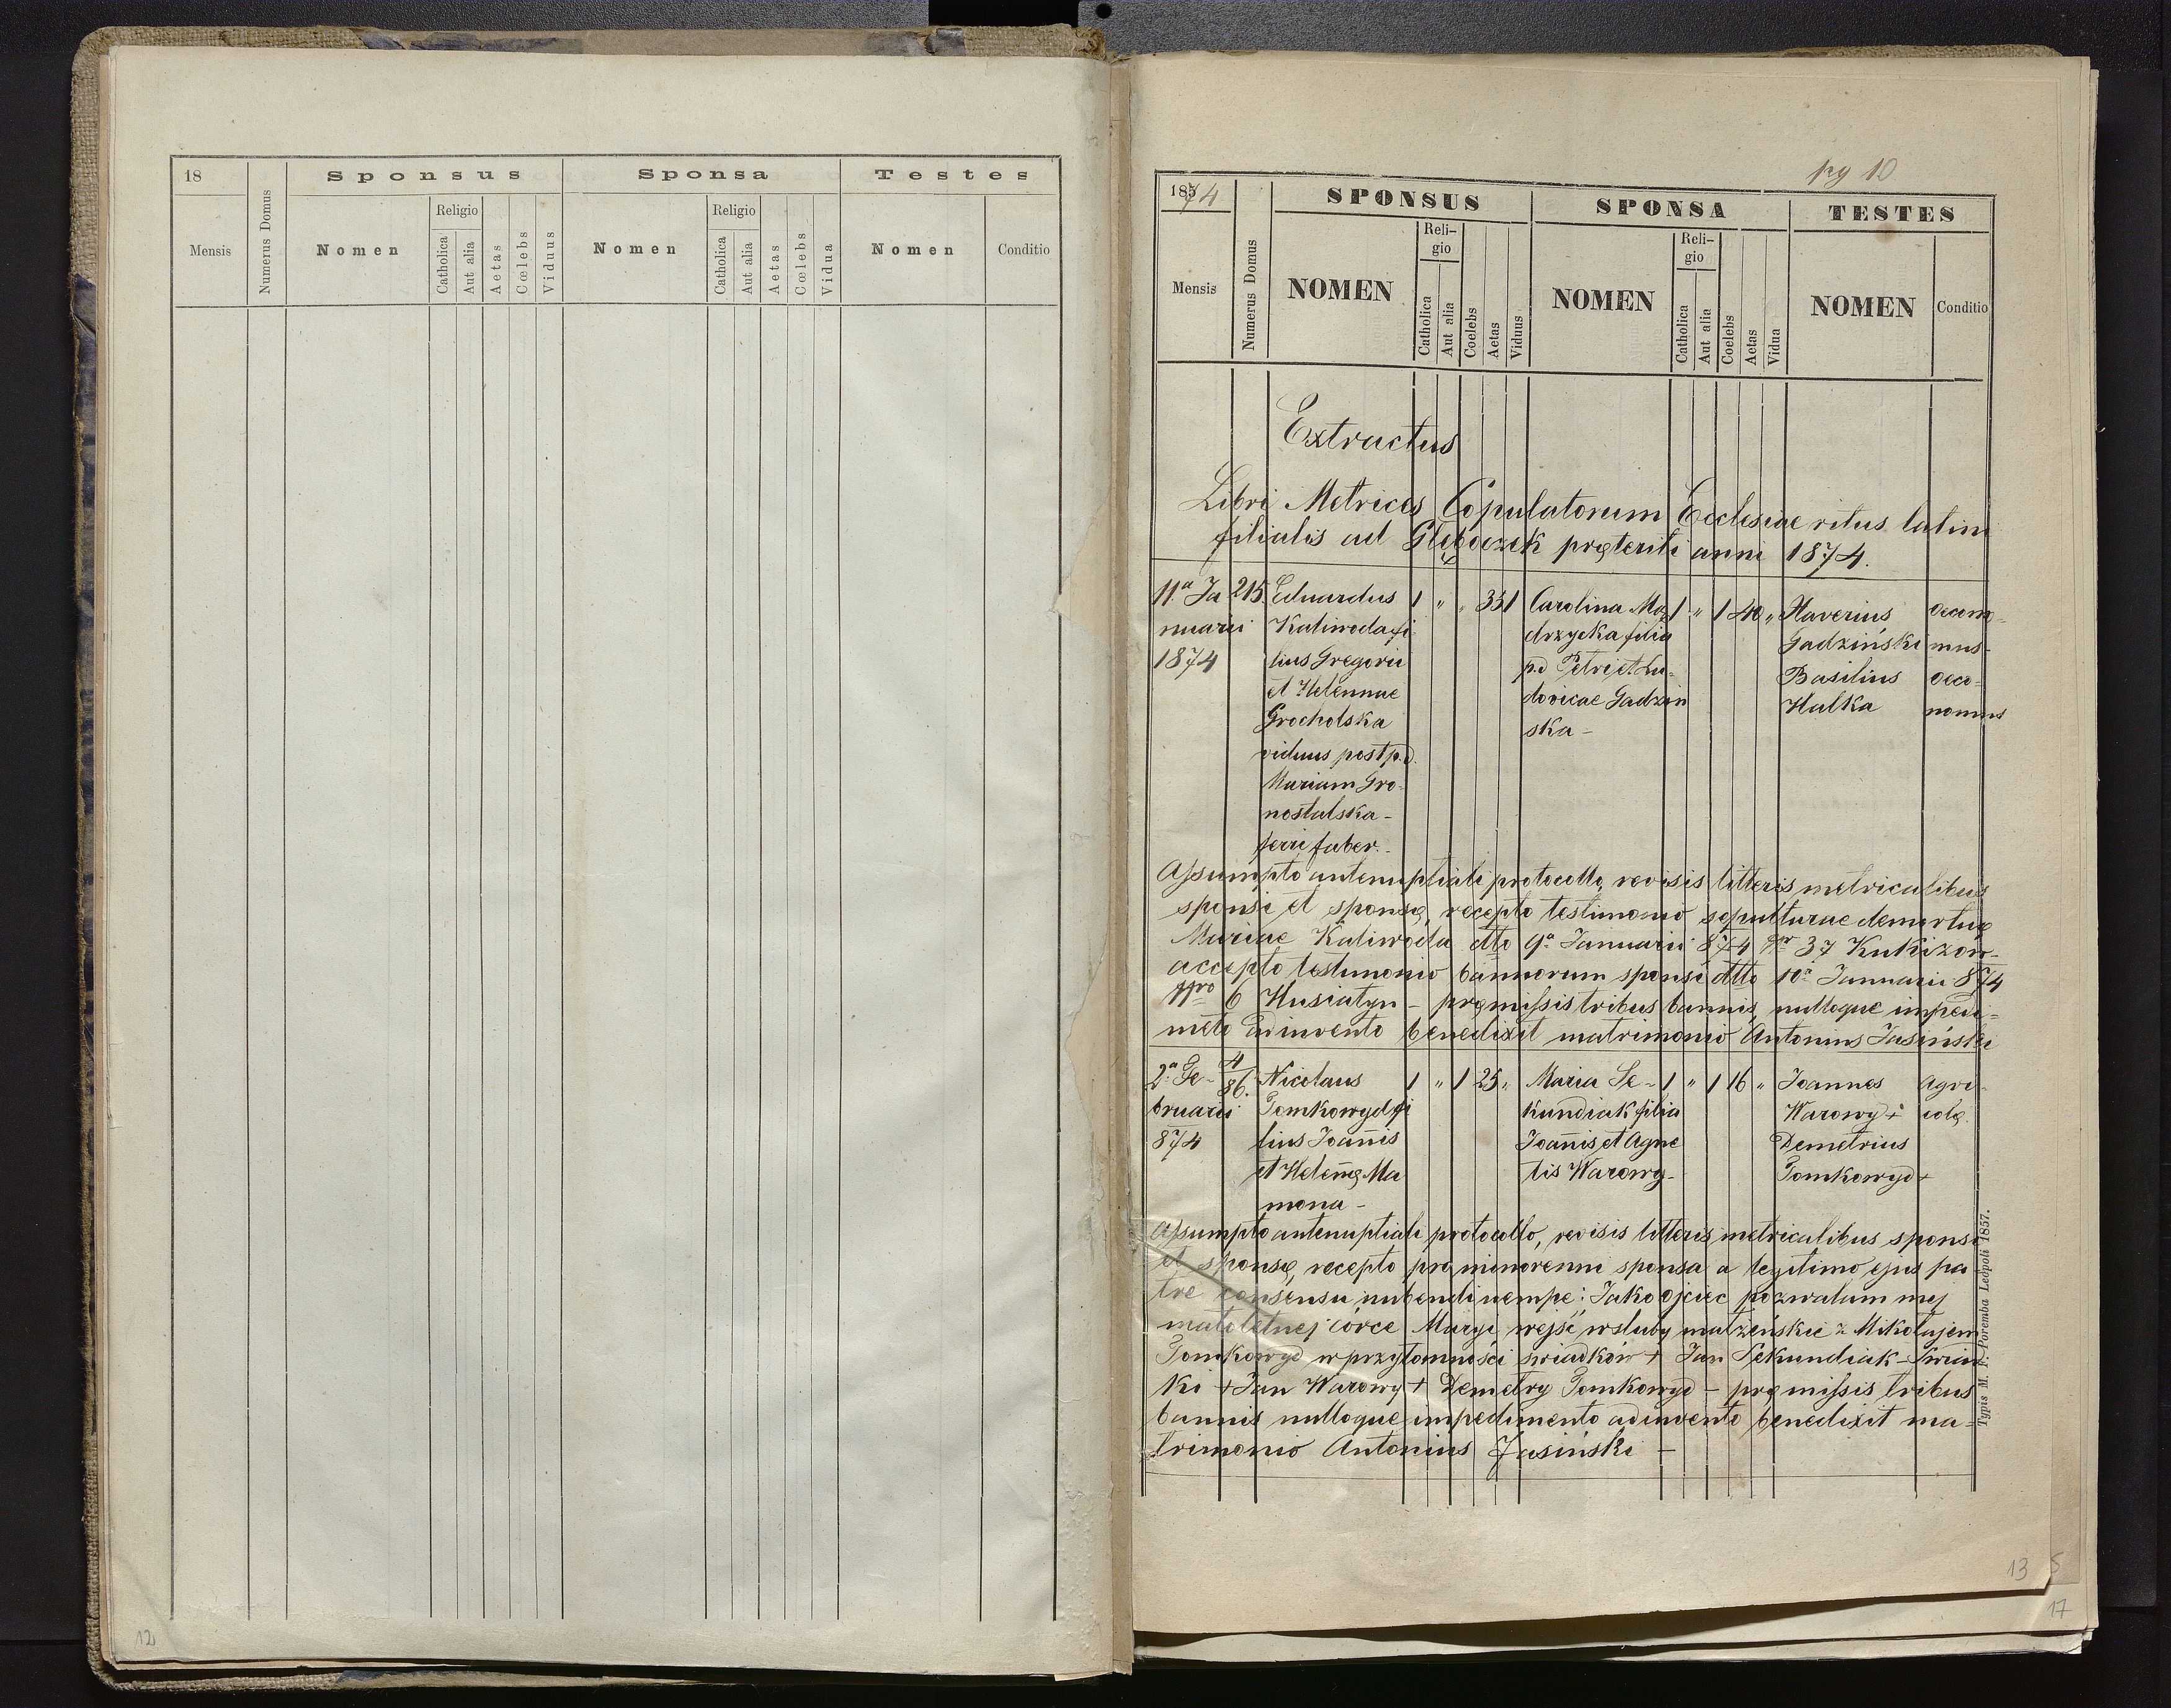 18
Numerus Domus
Sponsus
Sponsa
Testes
Mensis
Nomen
Religio
Catholica
Aut alia
Aetas
Cœlebs
Viduus
Nomen
Religio
Catholica
Aut alia
Aetas
Cœlebs
Vidua
Nomen
Conditio
12
pg 10
1874
Numerus Domus
SPONSUS
SPONSA
TESTES
Mensis
NOMEN
Reli-
gio
Catholica
Aut alia
Coelebs
Aetas
Viduus
NOMEN
Reli-
gio
Catholica
Aut alia
Coelebs
Aetas
Vidua
NOMEN
Conditio
Extractus
Libri Metrices Copulatorum Ecclesiae ritus latini
filialis ad Głęboczek pręteriti anni 1874.
11a Ja
nuarii
1874
215.
Eduardus
Kaliwoda fi
lius Gregorii
et Helennae
Grocholska
viduus post p.d.
Mariam Gro-
nostalska -
ferri faber.-
1 " " 35 1
Carolina Mo
drzycka filia
pd Petri et Lu-
dovicae Gadzin
ska -
1 " 1 40 "
Xaverius
Gadziński
Basilius
Halka
oecono-
mus-
oeco-
nomus
Assumpto antenuptiali protocollo, revisis litteris metricalibus
sponsi et sponsę, recepto testimonio sepulturae demortuę
Mariae Kaliwoda dto 9a Januarii 874 37 Kukizów-
accepto testimonio bannorum sponsi dtto 10a Januarii 874
Nro 6 Husiatyn - pręmissis tribus bannis, nulloque impedi-
mēto adinvento benedixit matrimonio Antonius Jasiński
2a Fe-
bruarii
874
4
86.
Nicolaus
Tomkowyd fi
lius Joannis
et Helenę Ma
mona -
1 " 1 25 "
Maria Se-
kundiak filia
Joannis et Agne
tis Warowy-
1 " 1 16 "
Joannes
Warowy +
Demetrius
Tomkowyd +
Agri-
colę.
Assumpto antenuptiali protocollo, revisis litteris metricalibus sponsi
et sponsę, recepto pro minorenni sponsa a legitimo ejus pa
tre consensu nubendi nempe: Jako ojciec pozwalam mej
małoletnej córce Maryi wejść w śluby małżeńskie z Mikołajem
Tomkowyd w przytomności świadków + Jan Sekundiak - Świad
ki + Jan Warowy + Demetry Tomkowyd - pręmissis tribus
bannis nulloque impedimento adinvento benedixit ma-
trimonio Antonius Jasiński -
Typis M. F. Poremba Leopoli 1857.
13
5
17